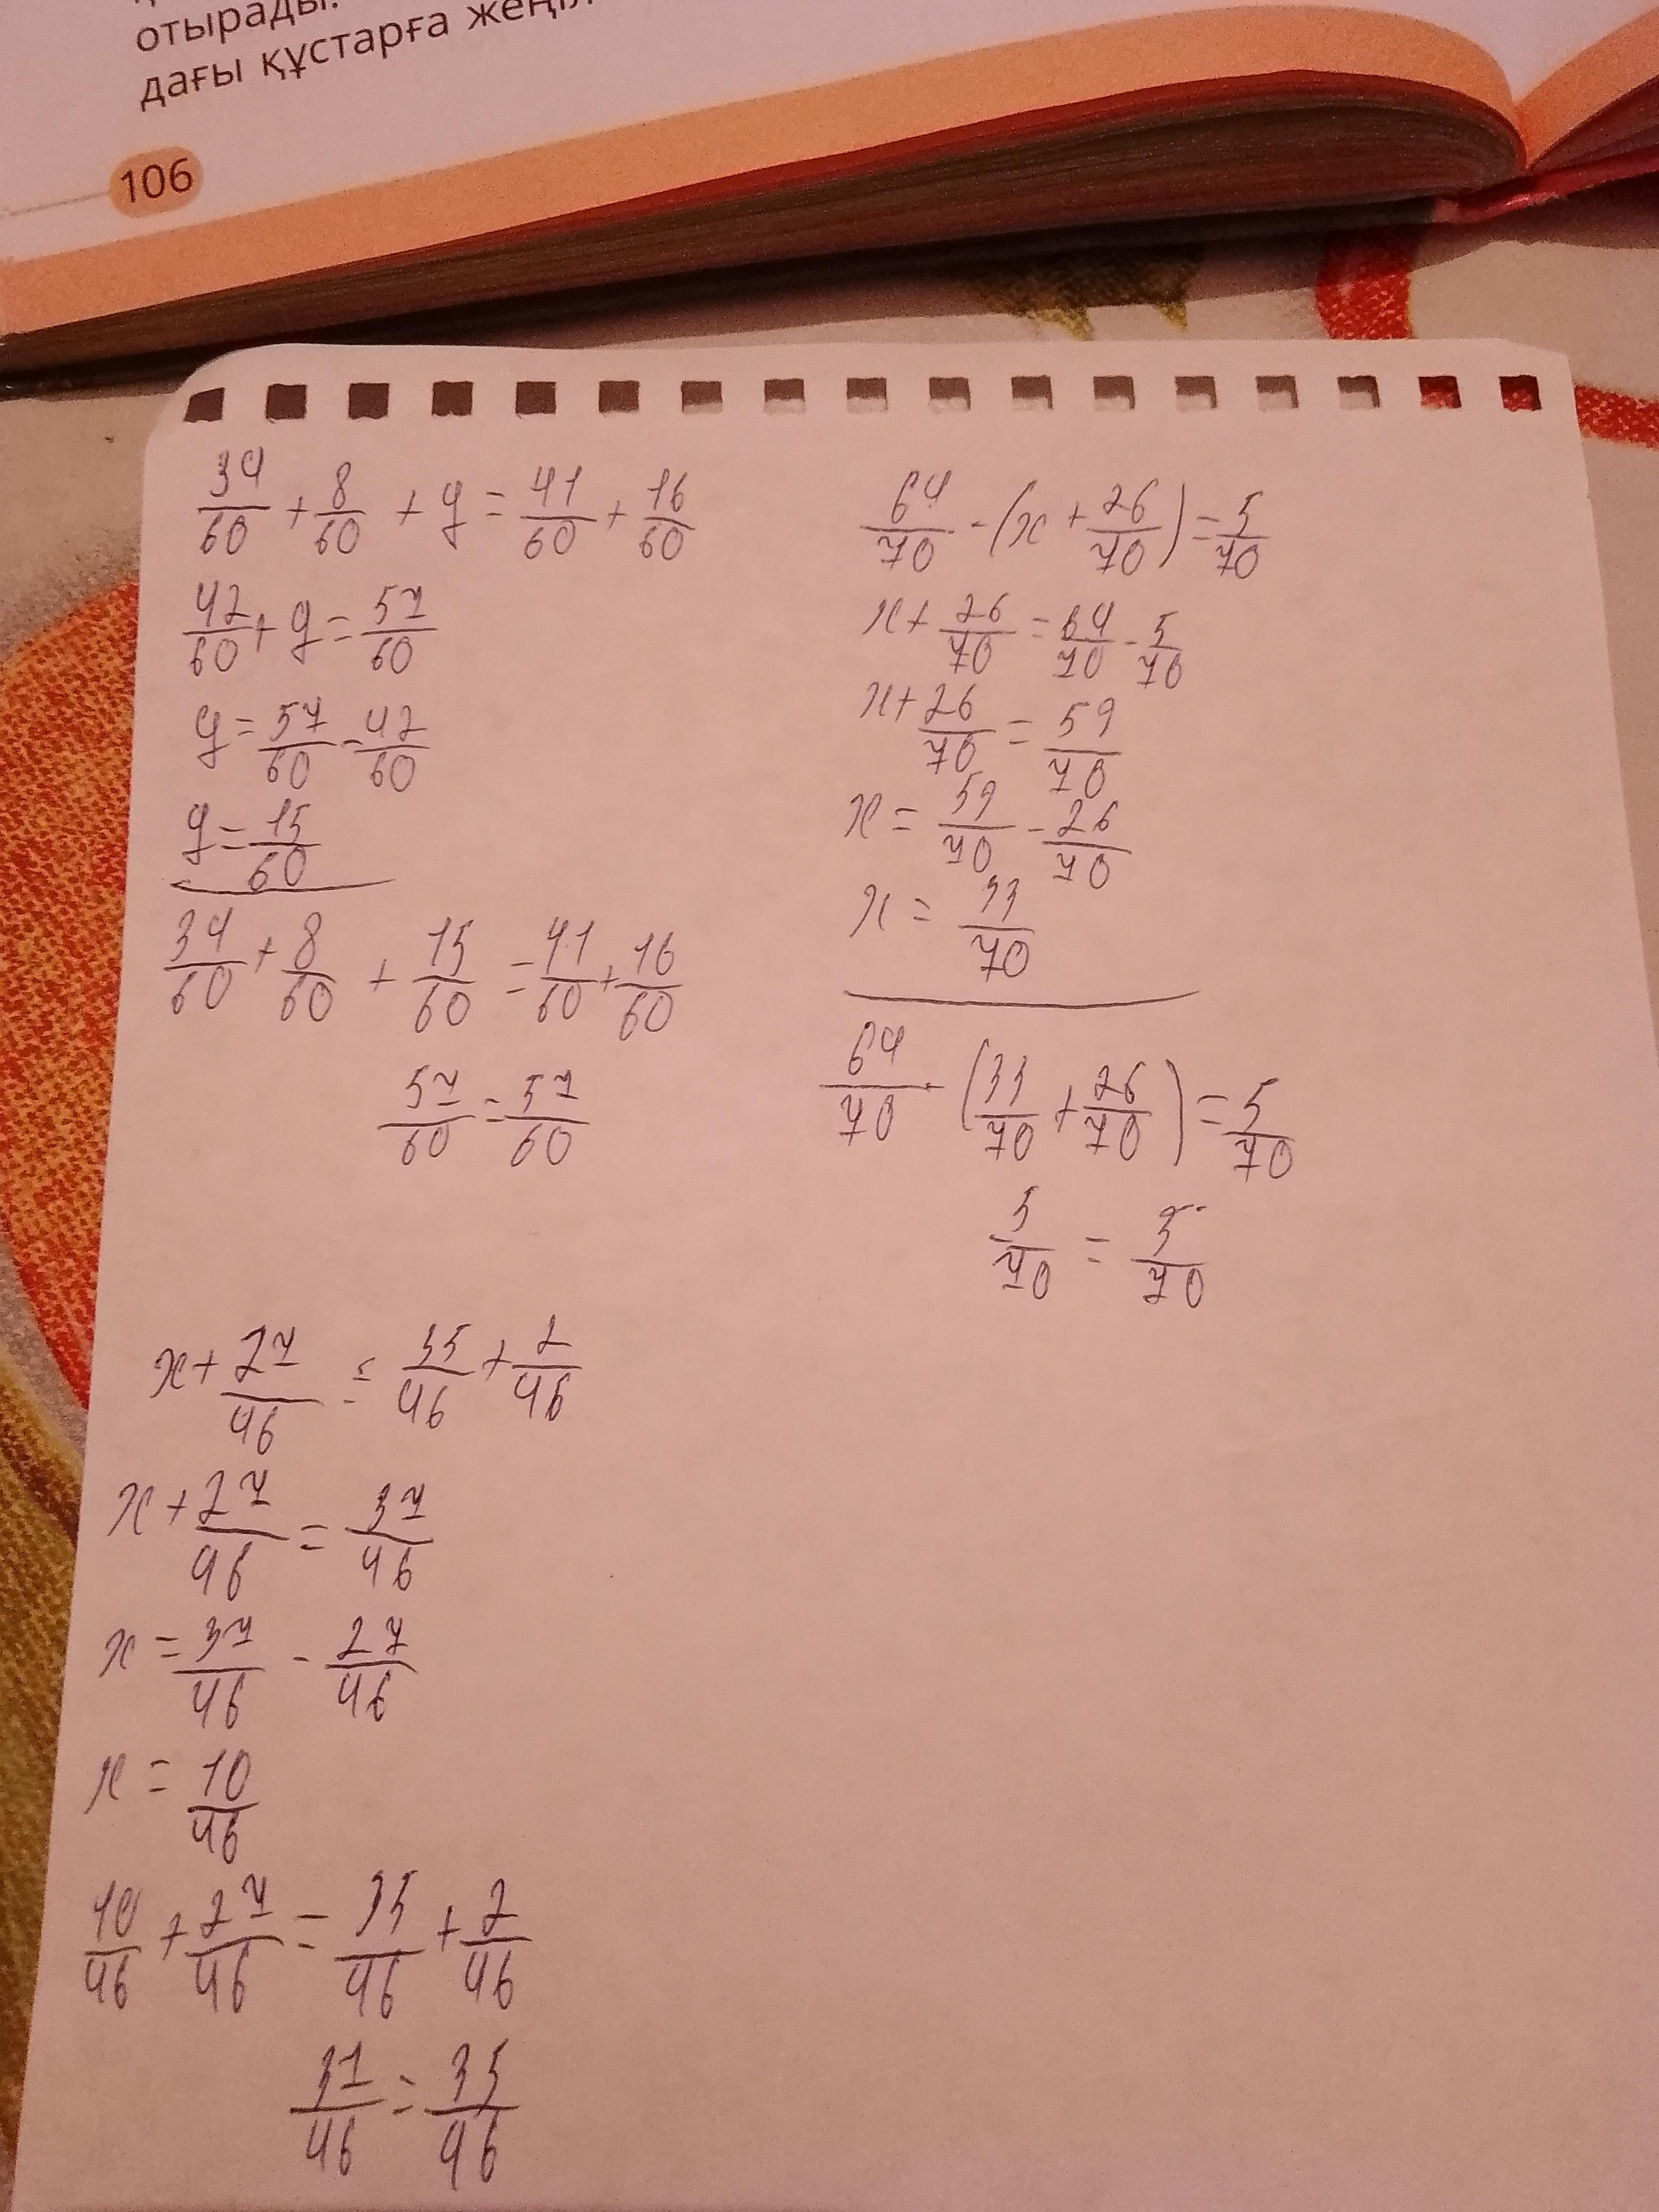 отырады.
дағы құстарға жеңіл
106
34/60 + 8/60 + y = 41/60 + 16/60
42/60 + y = 57/60
y = 57/60 - 42/60
y = 15/60
34/60 + 8/60 + 15/60 = 41/60 + 16/60
57/60 = 57/60
64/70 - (x + 26/70) = 5/70
x + 26/70 = 64/70 - 5/70
x + 26/70 = 59/70
x = 59/70 - 26/70
x = 33/70
64/70 - (33/70 + 26/70) = 5/70
5/70 = 5/70
x + 27/46 = 35/46 + 2/46
x + 27/46 = 37/46
x = 37/46 - 27/46
x = 10/46
10/46 + 27/46 = 35/46 + 2/46
37/46 = 35/46